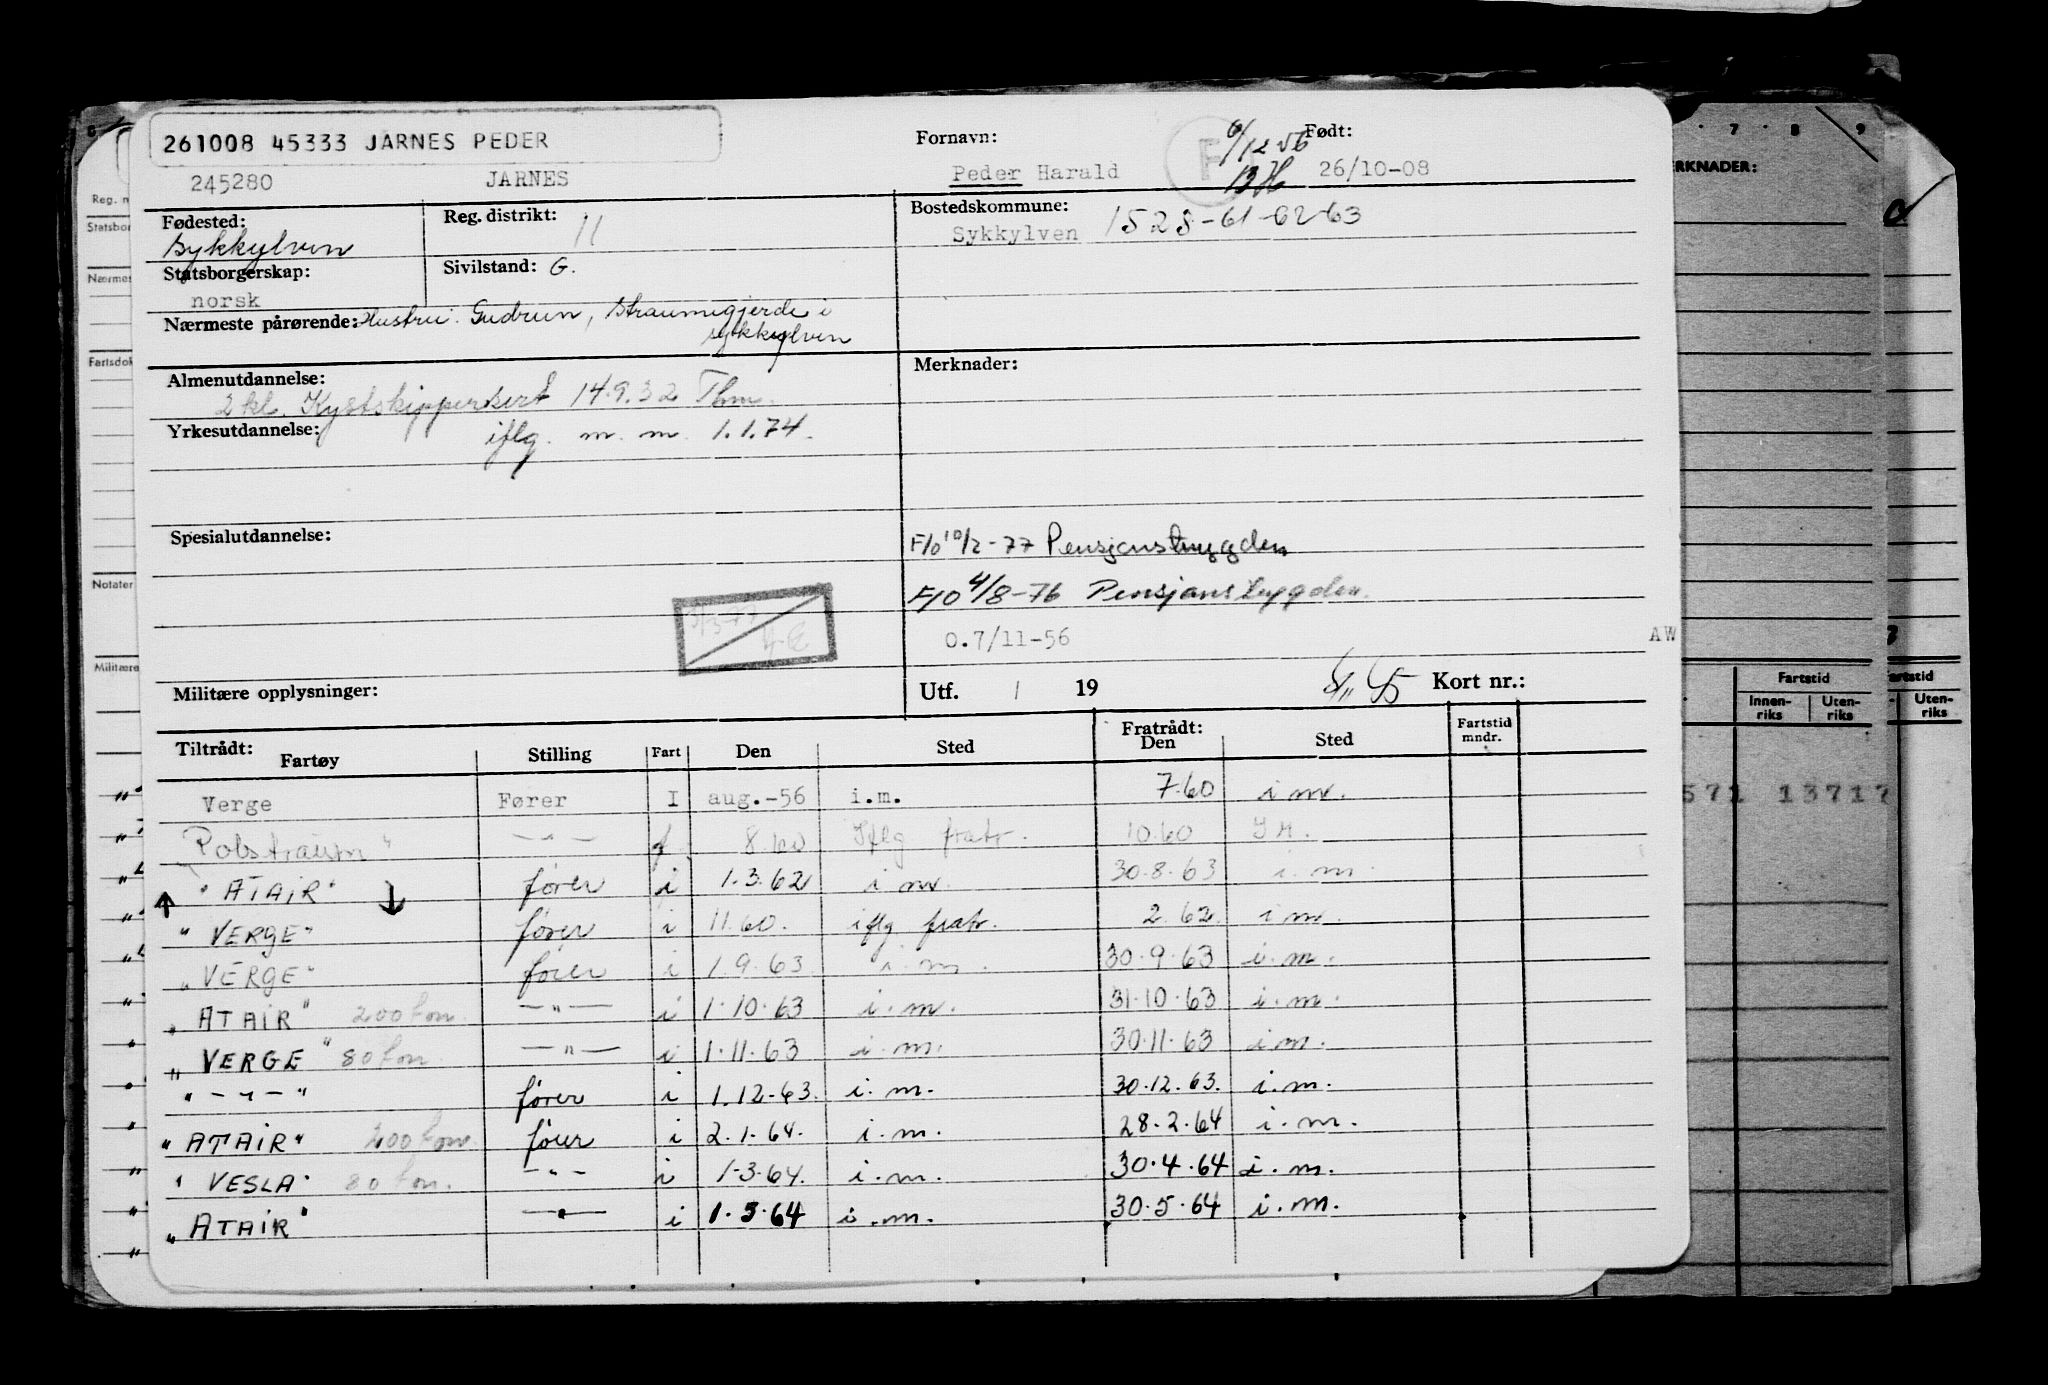 261008 45333 JARNES PEDER
245280 JARNES
Fornavn: Født:
Peder Harald F 6/12 56 BH 26/10-08
Fødested: Reg. distrikt: 11 Bostedskommune:
Sykkylven Sykkylven 1528-61-62-63
Statsborgerskap: Sivilstand: G.
norsk
Nærmeste pårørende: Hustru: Gudrun, Straumgjerde i
Sykkylven
Almenutdannelse: Merknader:
2 kl. Kystskippersert 14.9.32 Thm.
Yrkesutdannelse: iflg. m. m. 1.1.74.
Spesialutdannelse:
F/O 10/2-77 Pensjonstrygden
F/O 4/8-76 Pensjonstrygden.
O.7/11-56 AW
Militære opplysninger: Utf. / 19 Kort nr.:
Tiltrådt: Fratrådt:
Fartøy Stilling Fart Den Sted Den Sted Fartstid mndr.
Verge Fører I aug.-56 i.m. 7.60 i m.
Polstraum" — " — f 8.60 Iflg fratr. 10.60 I M.
"ATAIR" fører i 1.3.62 i m. 30.8.63 i.m.
"VERGE" fører i 11.60. iflg fratr. 2.62. i m.
"VERGE" fører i 1.9.63. i.m. 30.9.63 i.m.
"ATAIR" 200 tom. — " — i 1.10.63 i.m. 31.10.63 i.m.
"VERGE" 80 tom. — " — i 1.11.63 i.m. 30.11.63 i.m.
" — " — " fører i 1.12-63. i.m. 30.12.63. i.m.
"ATAIR" 200 tom. fører i 2.1.64. i.m. 28.2.64 i.m.
"VESLA" 80 tom. — " — i 1-3.64. i.m. 30.4.64 i.m.
"ATAIR" — " — i 1.5.64 i.m. 30.5.64 i.m.
7 8 9
RKNADER:
Fartstid
Innenriks Utenriks
571 13717
Fartstid
Utenriks
Reg. n
Statsbor
Nærmes
Fartsdok
Notater
Militære